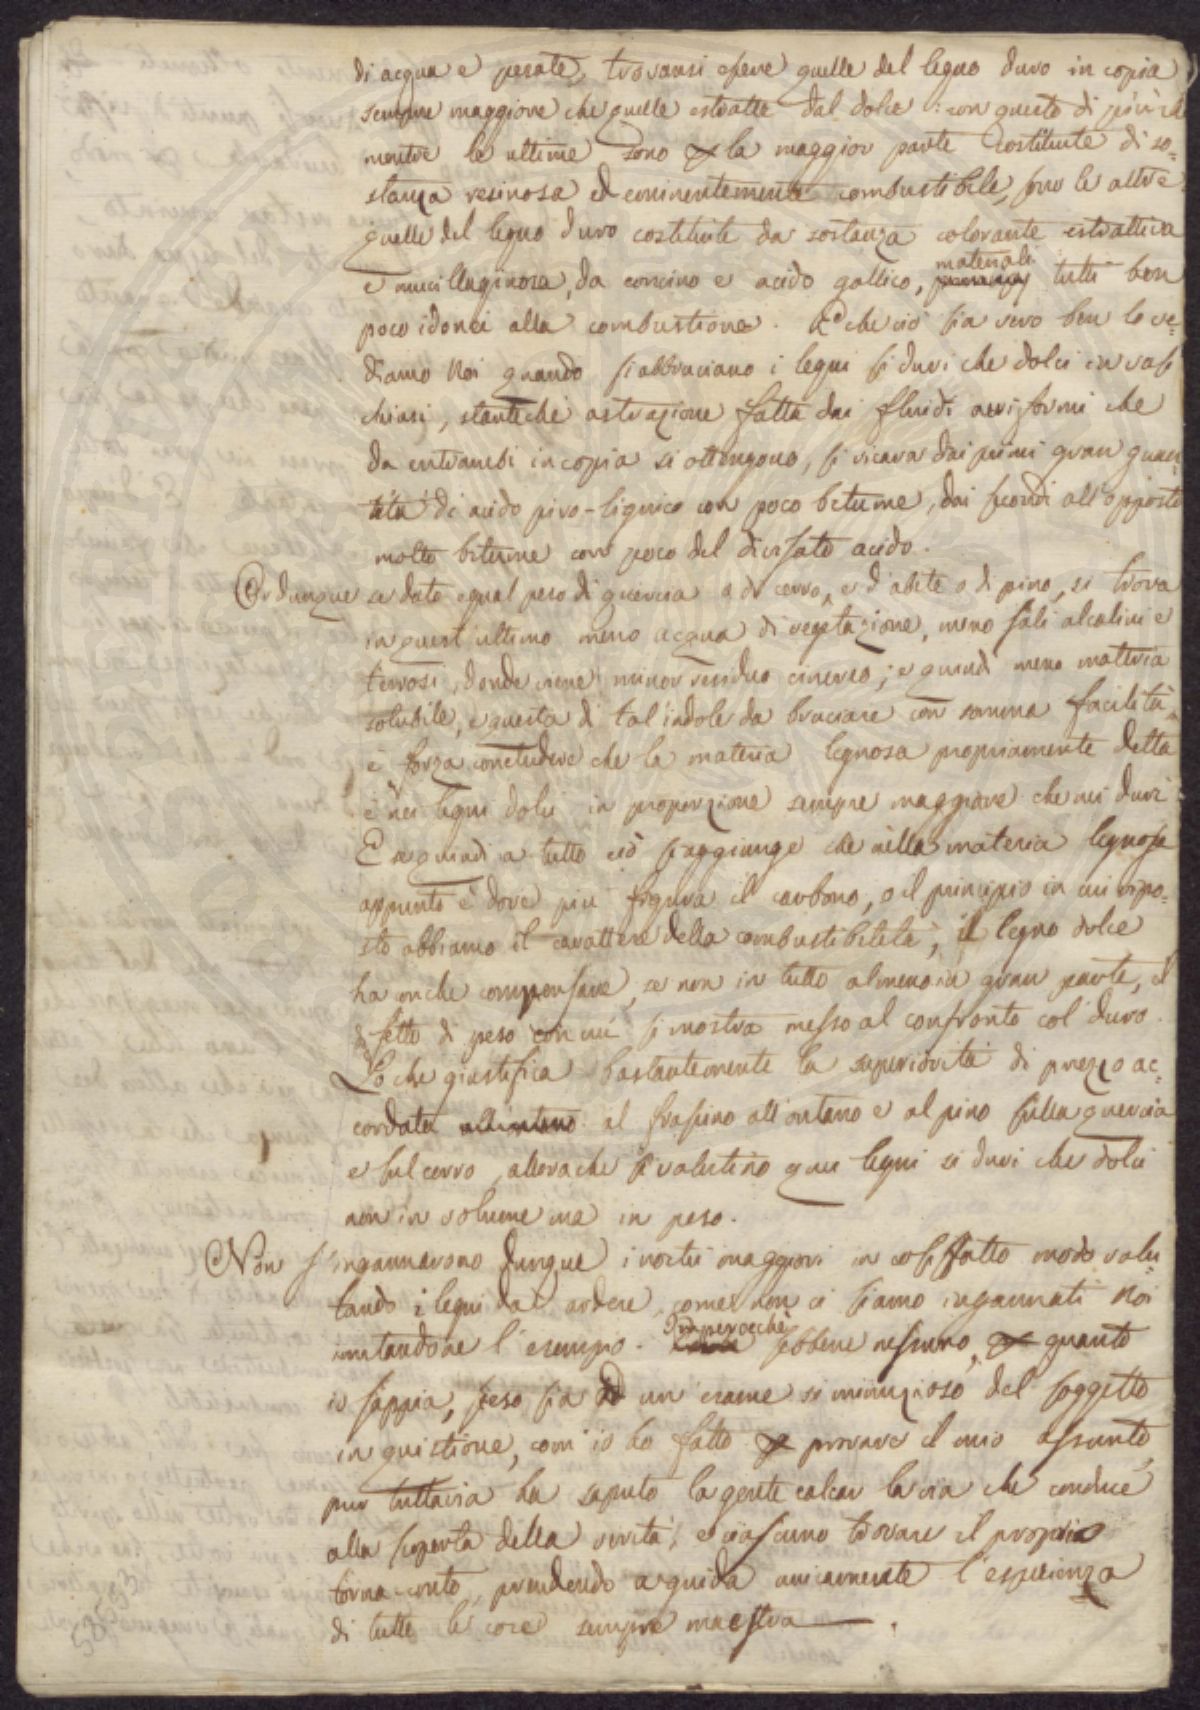 di acqua e pesate, trovansi essere quelle del legno duro in copia
sempre maggiore che quelle estratte dal dolce: con questo di più che
mentre le ultime sono per la maggior parte costituite di so=
stanza resinosa ed eminentemente combustibile, sono le altre
quelle del legno duro costituite da sostanza colorante estrattiva
e mucillaginosa, da concino e acido gallico, materiali tutti ben
poco idonei alla combustione. E che ciò sia vero ben lo ve=
diamo noi quando si abbruciano i legni sì duri che dolci in vasi
chiusi, stanteché astrazione fatta dai fluidi aeriformi che
da entrambi in copia si ottengono, si ricava dai primi gran quan=
tità di acido piro-lignico con poco bitume, dai secondi all'opposto
molto bitume con poco del divisato acido.
Or dunque se dato egual peso di quercia o di cerro, e d'abete o di pino, si trova
in quest'ultimo meno acqua di vegetazione, meno sali alcalini e
terrosi, donde viene minor residuo cinereo; e quindi meno materia
solubile, e questa di tal indole da bruciare con somma facilità
è forza concludere che la materia legnosa propriamente detta
è nei legni dolci in proporzione sempre maggiore che nei duri.
E se quindi a tutto ciò s'aggiunge che nella materia legnosa
appunto è dove più figura il carbono, o il principio in cui ripo=
sto abbiamo il carattere della combustibilità, il legno dolce
ha onche compensare, se non in tutto almeno in gran parte, il
difetto di peso con cui si mostra messo al confronto col duro.
Lo che giustifica bastantemente la superiorità di prezzo ac=
cordata al frassino all'ontano e al pino sulla quercia
e sul cerro, allorache si valutino quei legni sì duri che dolci
non in volume ma in peso.
Non s'ingannarono dunque i nostri maggiori in cosiffatto modo valu=
tando i legni da ardere, come non ci siamo ingannati noi
imitandone l'esempio. Imperocché sebbene nessuno, per quanto
io sappia, sceso sia ad un esame sì minuzioso del soggetto
in quistione, com'io ho fatto per provare il mio assunto,
pur tuttavia ha saputo la gente calcar la via che conduce
alla scoperta della verità, e ciascuno trovare il proprio
torna-conto, prendendo a guida unicamente l'esperienza
di tutte le cose sempre maestra.